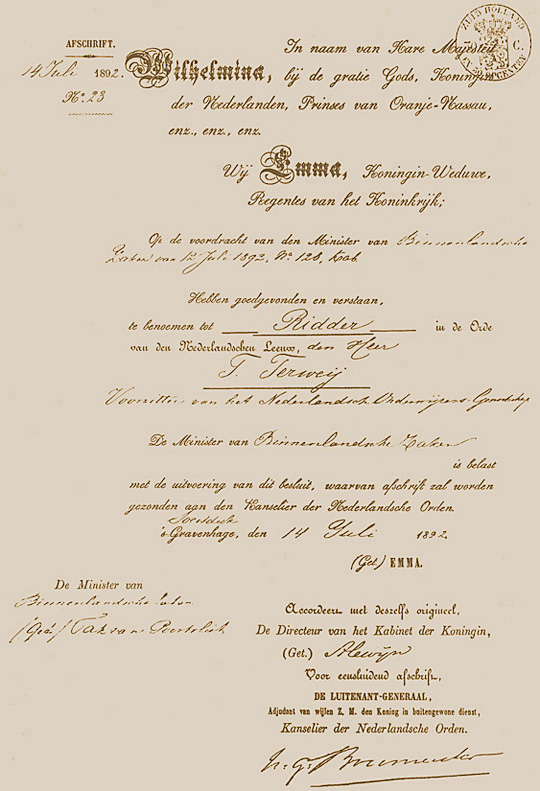 AFSCHRIFT.
14 Juli 1892.
No. 23
ZUID HOLLAND
C.
In naam van Hare Majesteit
Wilhelmina, bij de gratie Gods, Koningin
der Nederlanden, Prinses van Oranje-Nassau,
enz., enz., enz.
Wij Emma, Koningin-Weduwe,
Regentes van het Koninkrijk;
Op de voordracht van den Minister van Binnenlandsche
Zaken van 12 Juli 1892, No. 128, Kab.
Hebben goedgevonden en verstaan,
te benoemen tot Ridder in de Orde
van den Nederlandschen Leeuw, den Heer
T. Terweij
Voorzitter van het Nederlandsch Onderwijzers-Genootschap
De Minister van Binnenlandsche Zaken
is belast
met de uitvoering van dit besluit, waarvan afschrift zal worden
gezonden aan den Kanselier der Nederlandsche Orden.
Soestdijk
's Gravenhage, den 14 Juli 1892.
(Get.) EMMA.
De Minister van
Binnenlandsche Zaken
(Get.) Tak van Poortvliet
Accordeert met deszelfs origineel,
De Directeur van het Kabinet der Koningin,
(Get.) Alewijn
Voor eensluidend afschrift,
DE LUITENANT-GENERAAL,
Adjudant van wijlen Z. M. den Koning in buitengewone dienst,
Kanselier der Nederlandsche Orden.